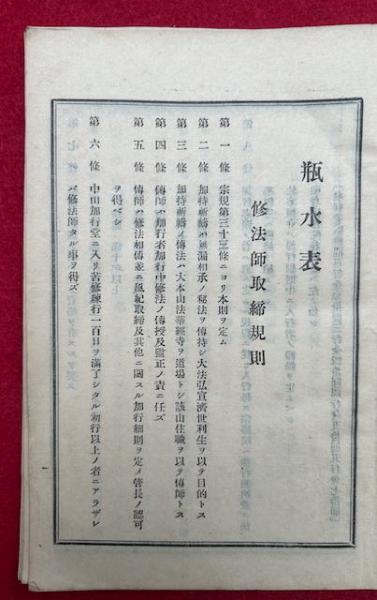 瓶水表
修法師取締規則
第一條 宗規第三十三條ニヨリ本則ヲ定ム
第二條 加持祈禱ハ無漏相承ノ秘法ヲ傳持シ大法弘宣濟世利生ヲ以テ目的トス
第三條 加持祈禱ノ傳法ハ大本山法華經寺ヲ道場トシ該山住職ヲ以テ傳師トス
第四條 傳師ハ加行者加行中修法ノ傳授及監正ノ責ニ任ズ
第五條 傳師ハ修法相傳並ニ風紀取締及其他ニ關スル加行細則ヲ定メ管長ノ認可
ヲ得ベシ
第六條 中山加行堂ニ入リ苦修練行一百日ヲ滿了シタル初行以上ノ者ニアラザレ
バ修法師タル事ヲ得ズ